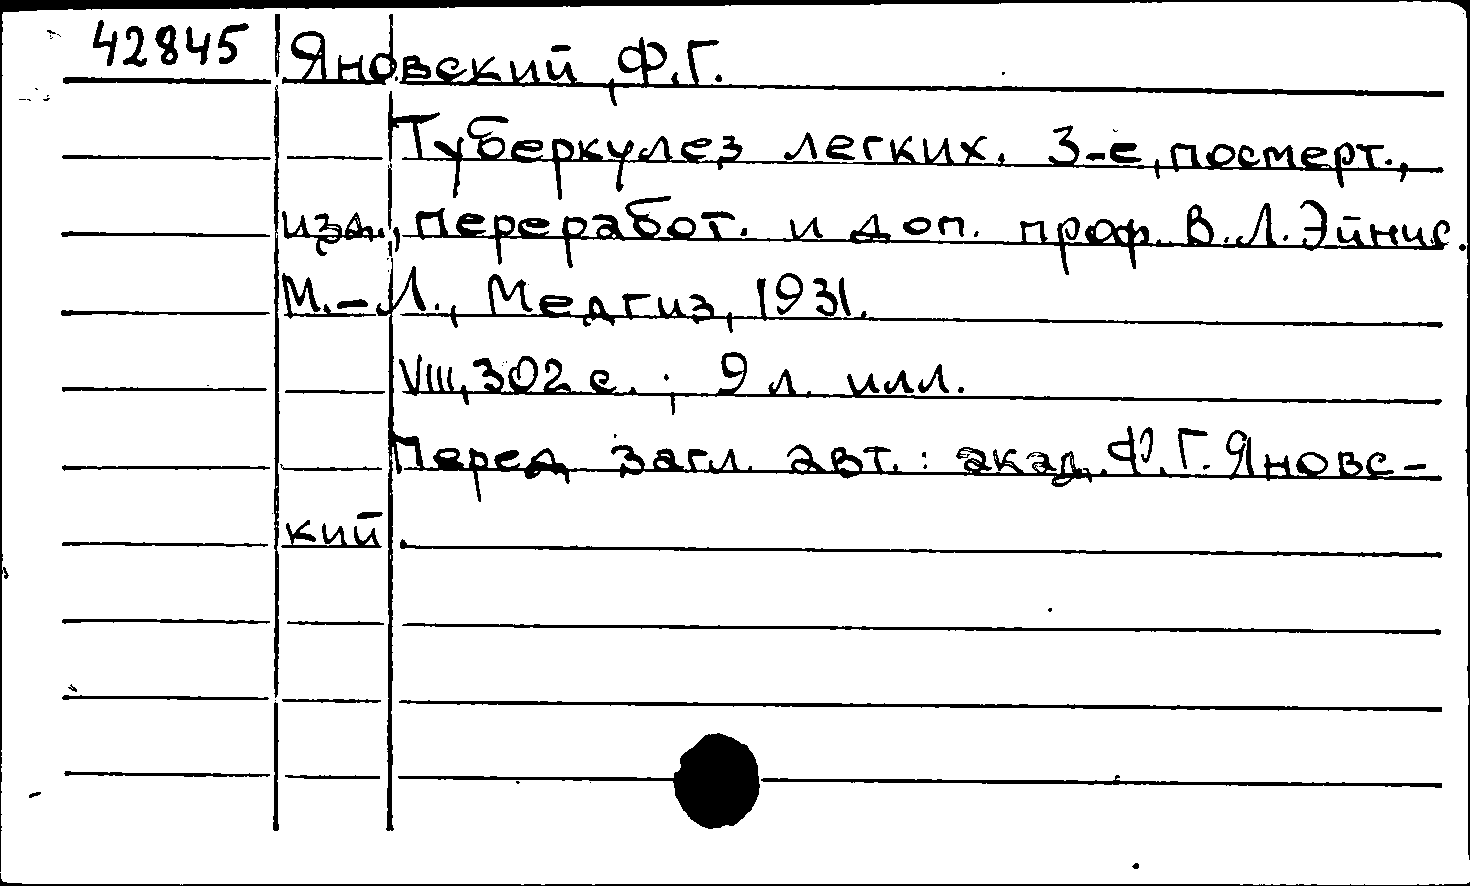 42845 Яновский, Ф.Г.
Туберкулез легких. 3-е, посмерт.,
изд., переработ. и доп. проф. В.Л.Эйнис.
М.-Л., Медгиз, 1931.
VIII, 302 с.; 9 л. илл.
Перед загл. авт.: акад. Ф.Г.Яновс-
кий.